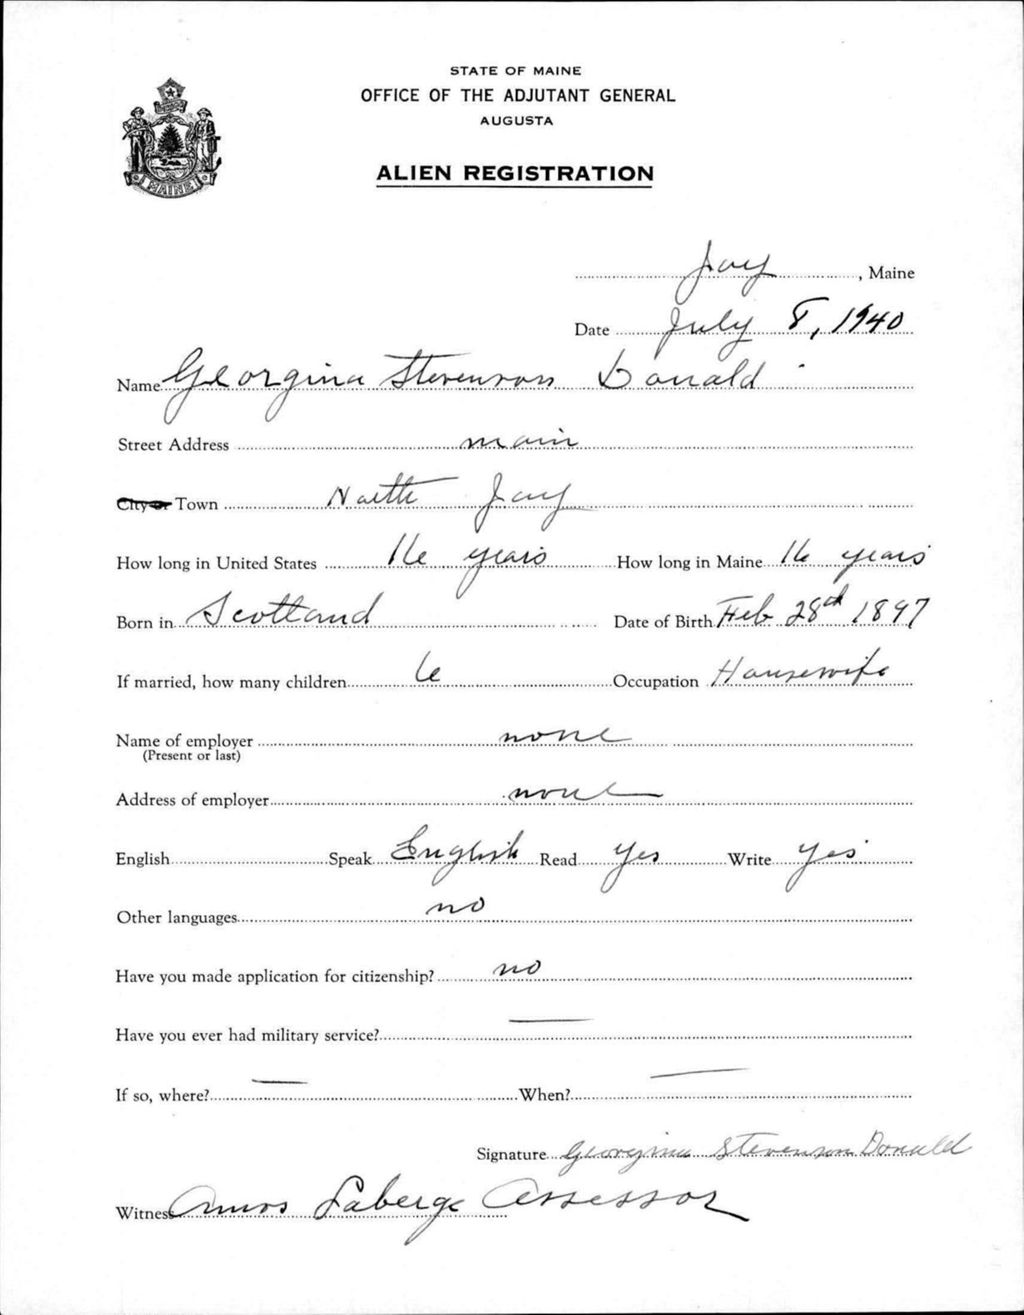 STATE OF MAINE
OFFICE OF THE ADJUTANT GENERAL
AUGUSTA
ALIEN REGISTRATION
MAINE
Jay, Maine
Date July 8, 1940
Name Georgina Stevenson Donald
Street Address main
City or Town North Jay
How long in United States 16 years How long in Maine 16 years
Born in Scotland Date of Birth Feb 28th 1897
If married, how many children 6 Occupation Housewife
Name of employer none
(Present or last)
Address of employer none
English Speak English Read Yes Write Yes
Other languages no
Have you made application for citizenship? no
Have you ever had military service? —
If so, where? — When? —
Signature Georgina Stevenson Donald
Witness Laberge Assessor